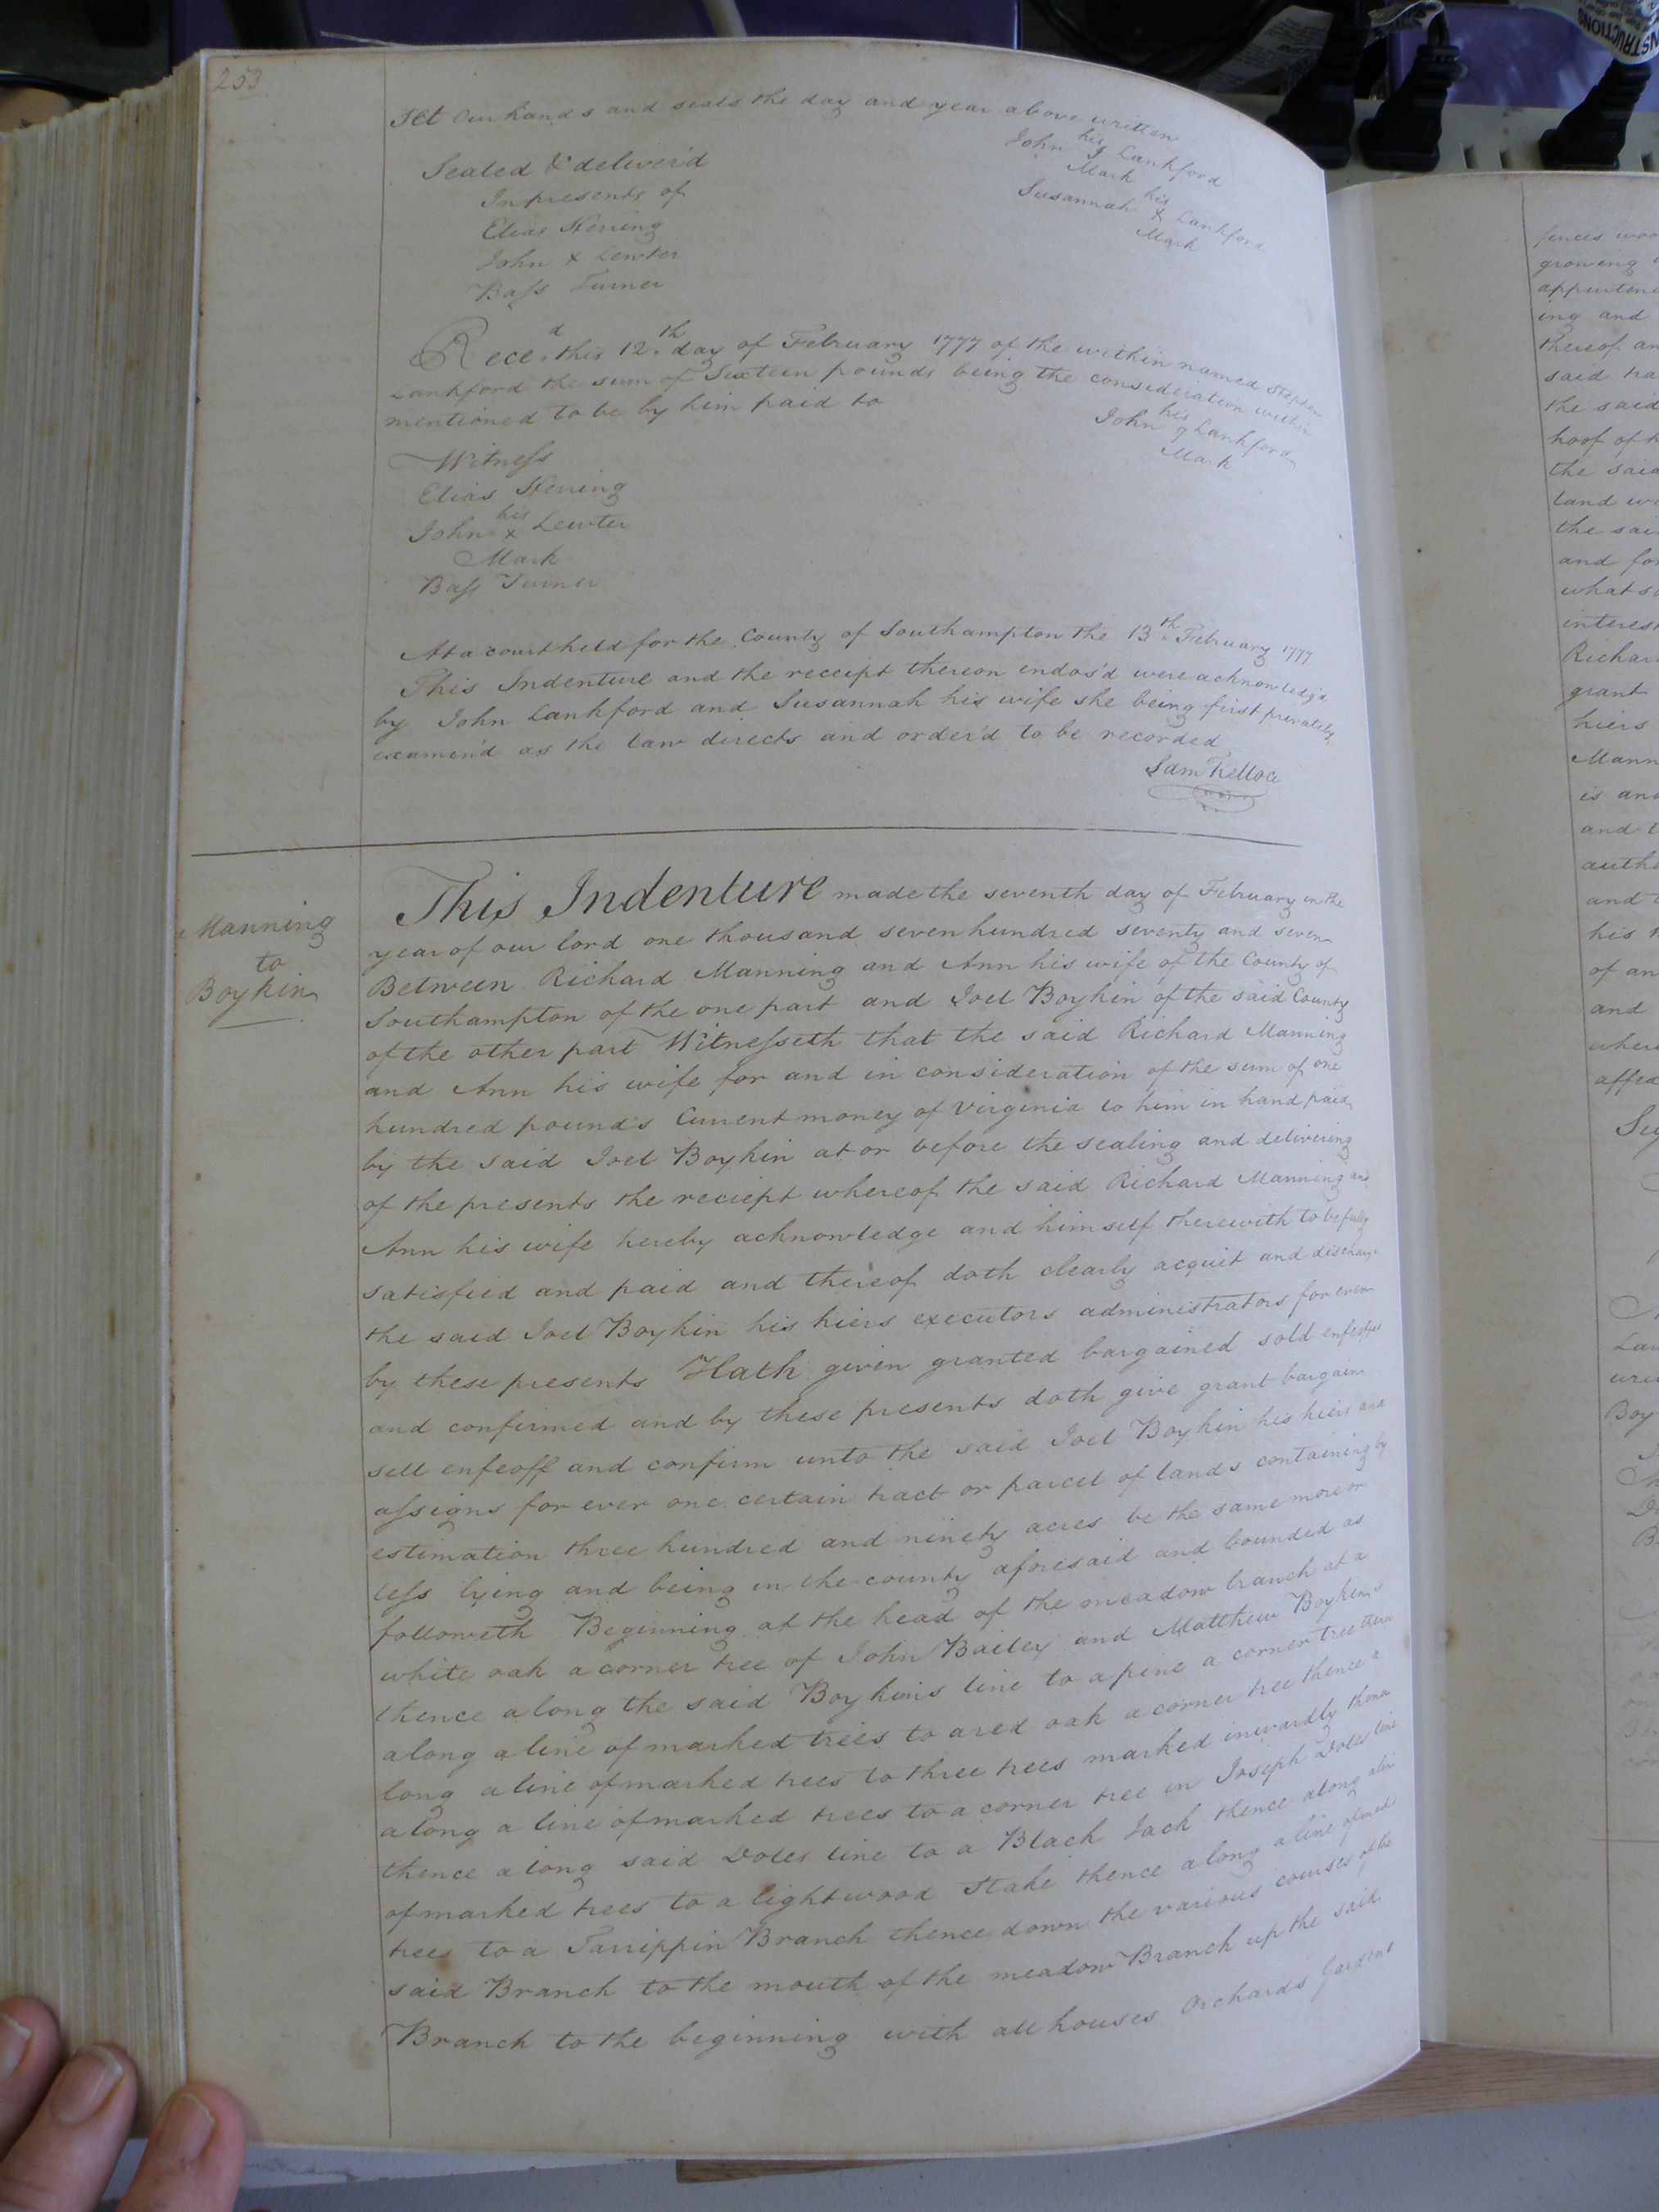 253
set Our hands and seals the day and year above written
John his Lankford
Mark
Susannah his x Lankford
Mark
Sealed & deliver'd
In presents of
Elias Herring
John x Lewter
Baſs Turner
Rece.d this 12.th day of February 1777 of the within named Stephen
Lankford the sum of Sixteen pounds being the consideration within
mentioned to be by him paid to
John his Lankford
Mark
Witneſs
Elias Herring
John his x Lewter
Mark
Baſs Turner
At a court held for the County of Southampton the 13.th February 1777
This Indenture and the receipt thereon endos'd were acknowledg'd
by John Lankford and Susannah his wife she being first privately
examin'd as the law directs and order'd to be recorded
Sam Kelloce
Manning
to
Boykin
This Indenture made the seventh day of February in the
year of our lord one thousand seven hundred seventy and seven
Between Richard Manning and Ann his wife of the County of
Southampton of the one part and Joel Boykin of the said County
of the other part Witneſseth that the said Richard Manning
and Ann his wife for and in consideration of the sum of one
hundred pounds Current money of Virginia to him in hand paid
by the said Joel Boykin at or before the sealing and delivering
of the presents the reciept whereof the said Richard Manning and
Ann his wife hereby acknowledge and himself therewith to be fully
satisfied and paid and thereof doth clearly acquit and discharge
the said Joel Boykin his hiers executors administrators for ever
by these presents Hath given granted bargained sold enfeoffed
and confirmed and by these presents doth give grant bargain
sell enfeoff and confirm unto the said Joel Boykin his hiers and
aſsigns for ever one certain tract or parcel of lands containing by
estimation three hundred and ninety acres be the same more or
leſs lying and being in the county aforesaid and bounded as
followeth Beginning at the head of the meadow branch at a
white oak a corner tree of John Bailey and Matthew Boykins
thence along the said Boykins line to a pine a corner tree thence
along a line of marked trees to a red oak a corner tree thence a
long a line of marked trees to three trees marked inwardly thence
along a line of marked trees to a corner tree in Joseph Doles line
thence along said Doles line to a Black Jack thence along a line
of marked trees to a lightwood Stake thence along a line of marked
trees to a Tarrippin Branch thence down the various courses of the
said Branch to the mouth of the meadow Branch up the said
Branch to the beginning with all houses Orchards Gardens
growing
ing and
thereof
said
the said
hoof of
the said
land
the
and for
interest
grant
hiers
is and
and
his
of an
and